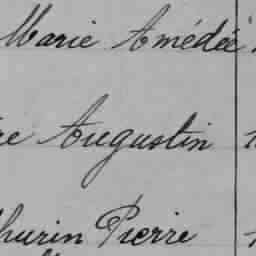 Marie Amédée
re Augustin
hurin Pierre